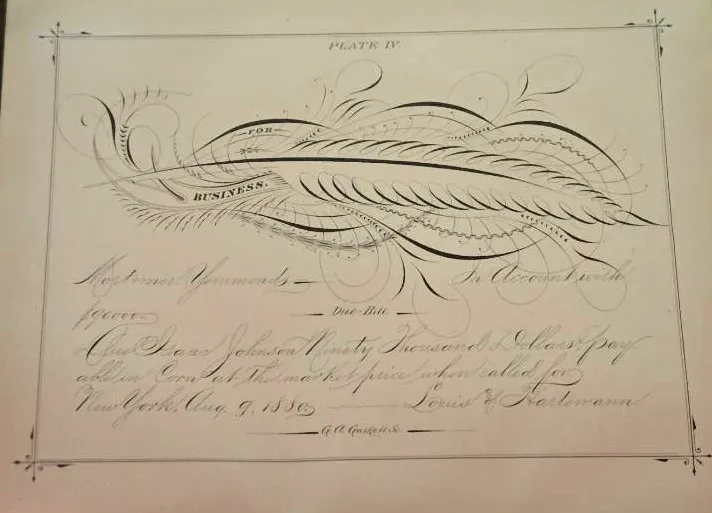 PLATE IV.
FOR
BUSINESS.
Mortimer Yommonds — In Account with
$90000
Due-Bill.
Due Isaac Johnson Ninety Thousand Dollars pay
able in Corn at the market price when called for
New York, Aug. 9, 1880, Louis H. Hartmann
G. A. Gaskell Sc.